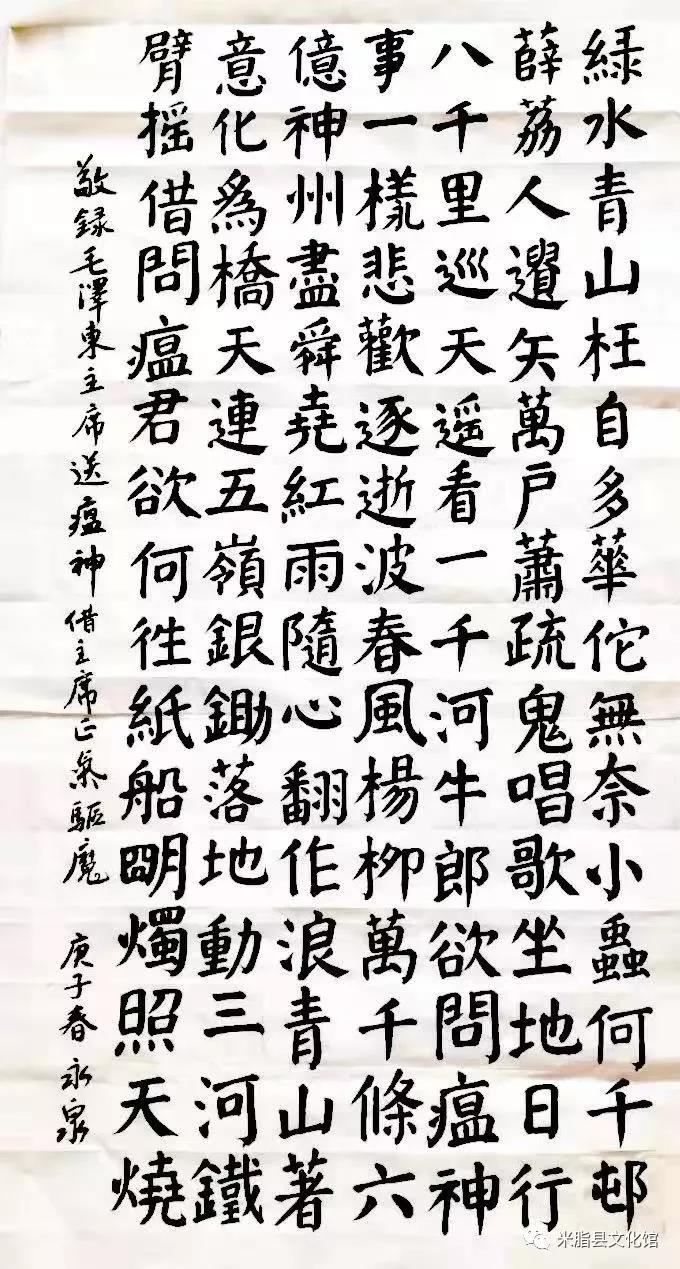 緑水青山枉自多華佗無奈小蟲何千邨
薛荔人遺矢萬戶蕭疏鬼唱歌坐地日行
八千里巡天遥看一千河牛郎欲問瘟神
事一樣悲歡逐逝波春風楊柳萬千條六
億神州盡舜堯紅雨隨心翻作浪青山著
意化爲橋天連五嶺銀鋤落地動三河鐵
臂摇借問瘟君欲何徃紙船朙燭照天燒
敬録毛澤東主席送瘟神借主席正氣驅魔 庚子春 永泉
米脂县文化馆